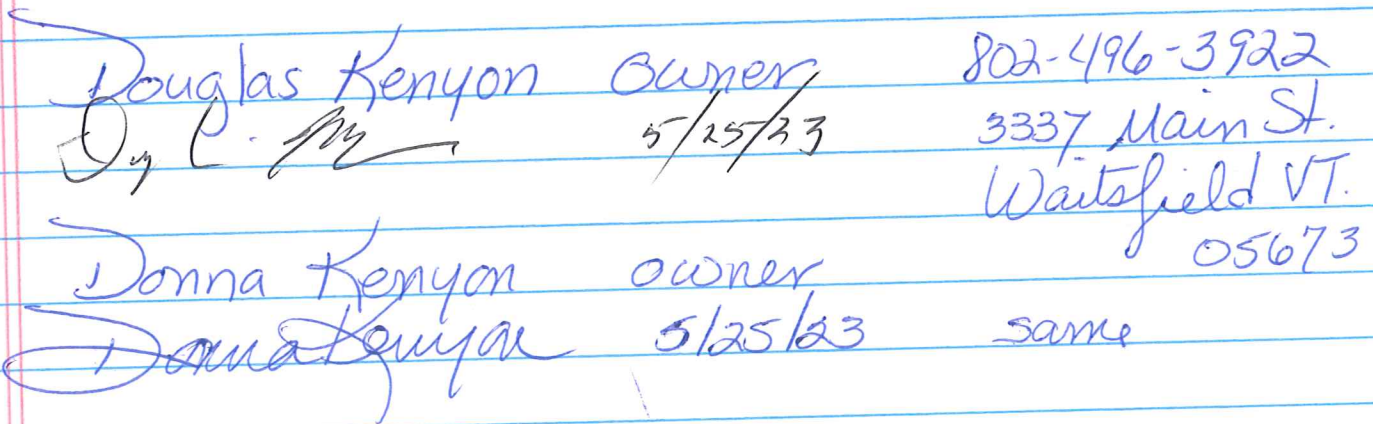 Douglas Kenyon owner 802-496-3922
5/25/23 3337 Main St.
Waitsfield VT.
05673
Donna Kenyon owner
Donna Kenyon 5/25/23 same